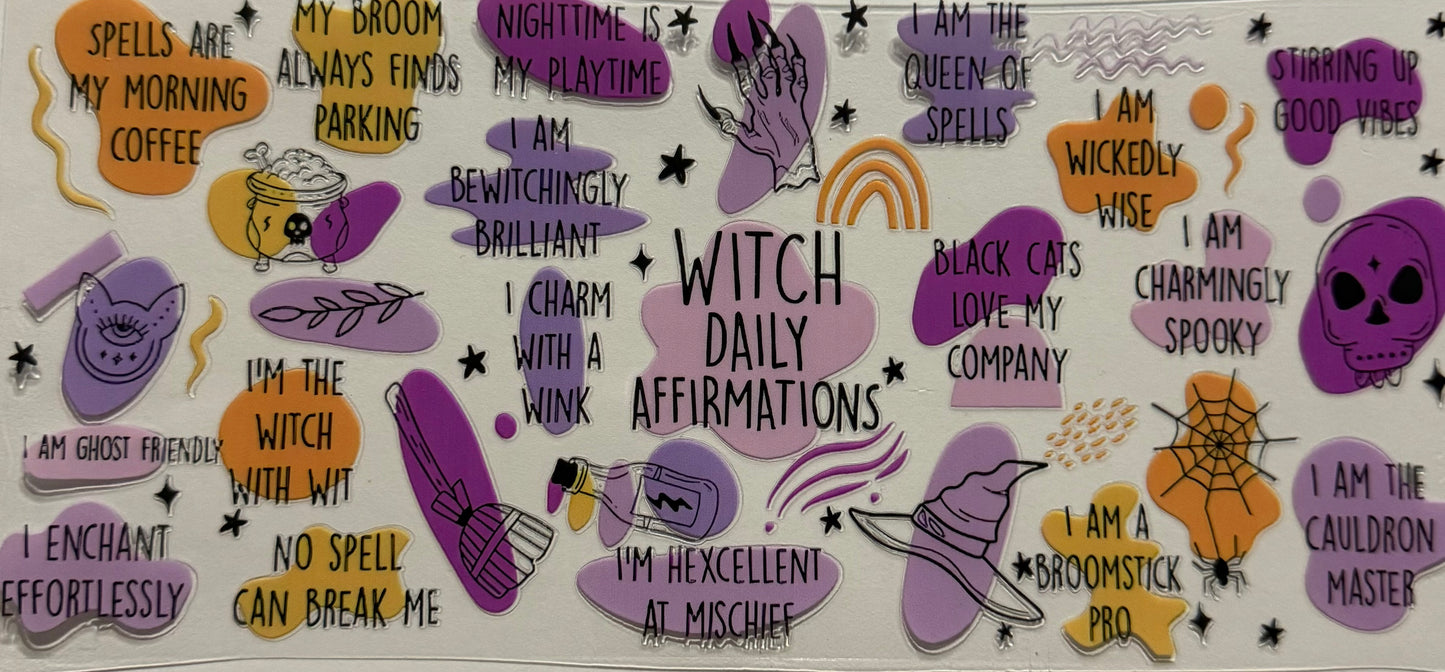 SPELLS ARE
MY MORNING
COFFEE
MY BROOM
ALWAYS FINDS
PARKING
NIGHTTIME IS
MY PLAYTIME
I AM THE
QUEEN OF
SPELLS
STIRRING UP
GOOD VIBES
I AM
BEWITCHINGLY
BRILLIANT
I AM
WICKEDLY
WISE
I CHARM
WITH A
WINK
WITCH
DAILY
AFFIRMATIONS
BLACK CATS
LOVE MY
COMPANY
I AM
CHARMINGLY
SPOOKY
I'M THE
WITCH
WITH WIT
I AM GHOST FRIENDLY
I ENCHANT
EFFORTLESSLY
NO SPELL
CAN BREAK ME
I'M HEXCELLENT
AT MISCHIEF
I AM A
BROOMSTICK
PRO
I AM THE
CAULDRON
MASTER